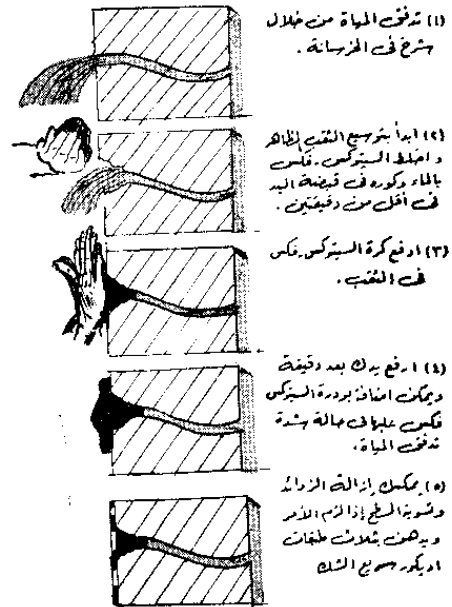 (١) تدفق المياة من خلال
شرخ فى الخرسانة .
(٢) ابدأ بتوسيع الثقب لظاهر
واخلط السيتوكس . فكس
بالماء وكوره فى قبضة اليد
فى أقل من دقيقتين .
(٣) ادفع كرة السيتوكس . فكس
فى الثقب .
(٤) ارفع يدك بعد دقيقة
ويمكن اضافة بودرة السيتوكس
فكس عليها فى حالة شدة
تدفق المياة .
(٥) يمكنك إزالة الزوائد
وتسوية السطح إذا لزم الأمر
ويدهن بثلاث طبقات
اديكور سريع الشك